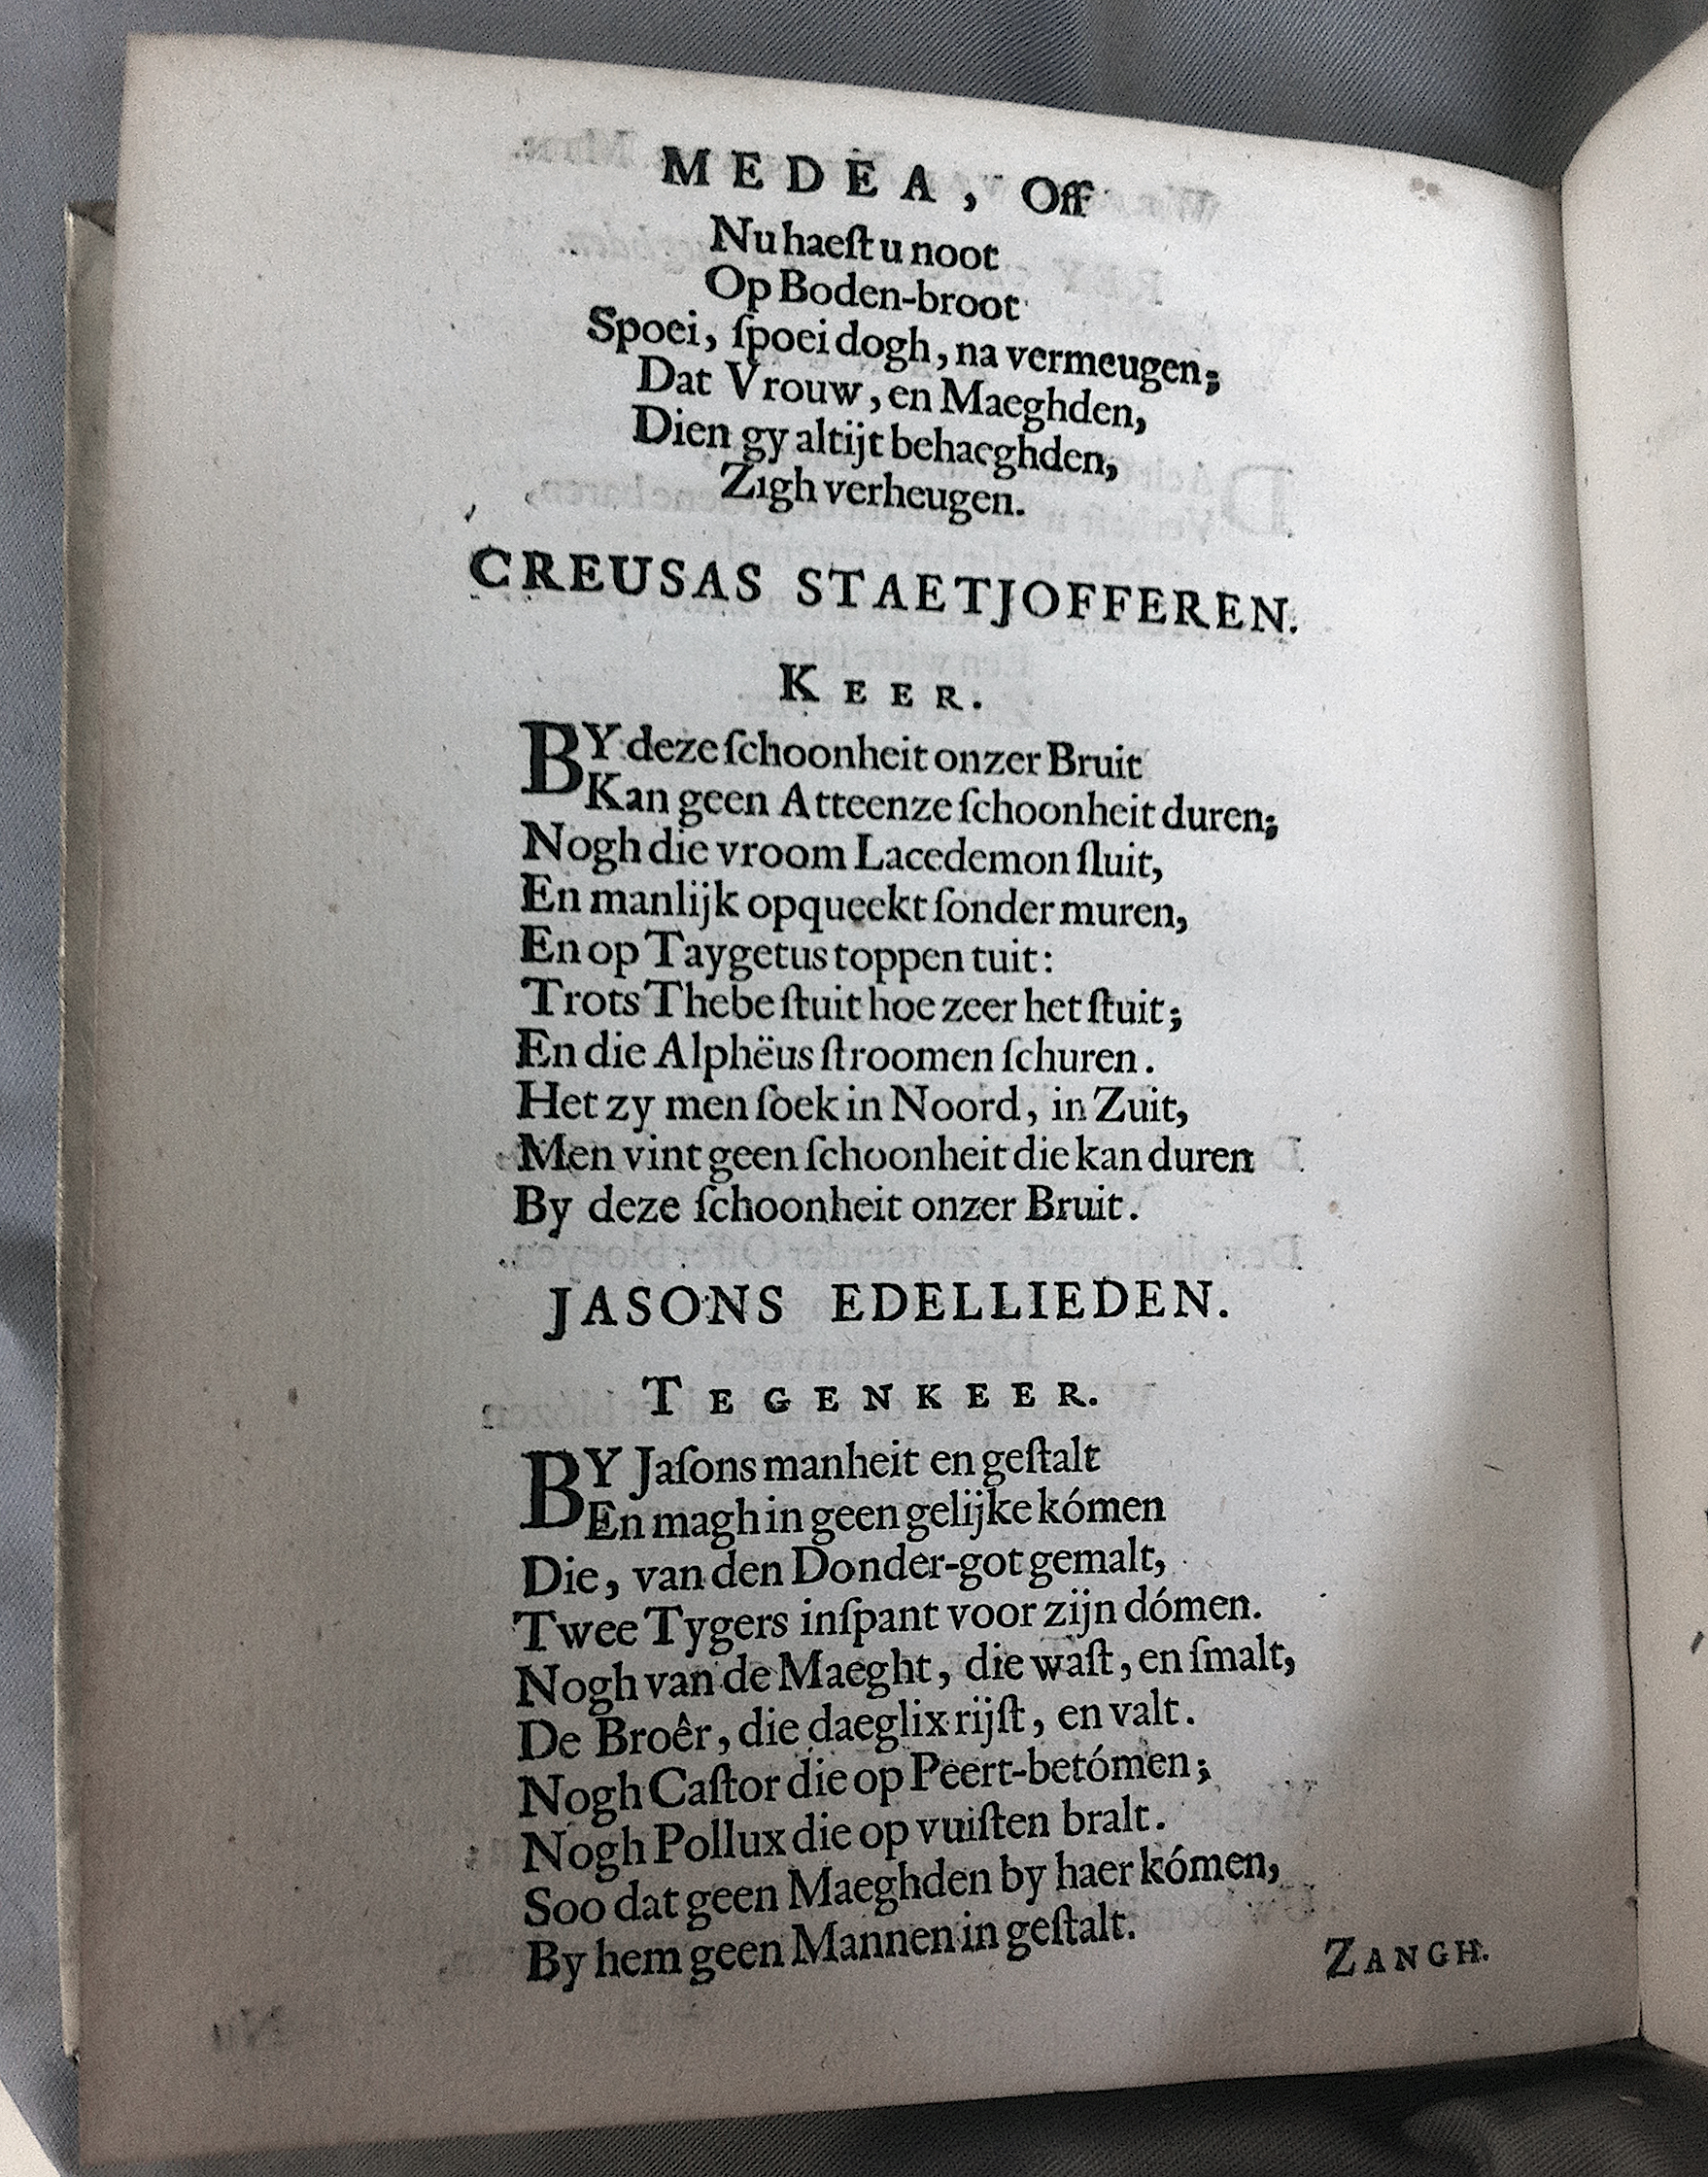 MEDEA, Off
Nu haeſt u noot
Op Boden-broot
Spoei, ſpoei dogh, na vermeugen;
Dat Vrouw, en Maeghden,
Dien gy altijt behaeghden,
Zigh verheugen.
CREUSAS STAETJOFFEREN.
KEER.
BY deze ſchoonheit onzer Bruit
Kan geen Atteenze ſchoonheit duren;
Nogh die vroom Lacedemon ſluit,
En manlijk opqueekt ſonder muren,
En op Taygetus toppen tuit:
Trots Thebe ſtuit hoe zeer het ſtuit;
En die Alphëus ſtroomen ſchuren.
Het zy men ſoek in Noord, in Zuit,
Men vint geen ſchoonheit die kan duren
By deze ſchoonheit onzer Bruit.
JASONS EDELLIEDEN.
TEGENKEER.
BY Jaſons manheit en geſtalt
En magh in geen gelijke kómen
Die, van den Donder-got gemalt,
Twee Tygers inſpant voor zijn dómen.
Nogh van de Maeght, die waſt, en ſmalt,
De Broêr, die daeglix rijſt, en valt.
Nogh Caſtor die op Peert-betómen;
Nogh Pollux die op vuiſten bralt.
Soo dat geen Maeghden by haer kómen,
By hem geen Mannen in geſtalt.
ZANGH.